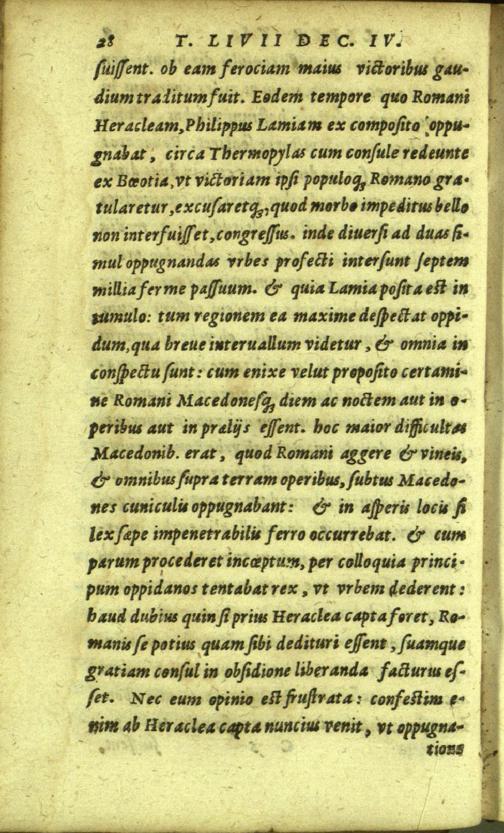 28 T. LIVII DEC. IV.
fuissent. ob eam ferociam maius victoribus gau-
dium traditum fuit. Eodem tempore quo Romani
Heracleam, Philippus Lamiam ex composito oppu-
gnabat, circa Thermopylas cum consule redeunte
ex Bœotia, vt victoriam ipsi populoq; Romano gra-
tularetur, excusaretq;, quod morbo impeditus bello
non interfuisset, congressus. inde diuersi ad duas si-
mul oppugnandas vrbes profecti intersunt septem
millia ferme passuum. & quia Lamia posita est in
tumulo: tum regionem ea maxime despectat oppi-
dum, qua breue interuallum videtur, & omnia in
conspectu sunt: cum enixe velut proposito certami-
ne Romani Macedonesq; diem ac noctem aut in o-
peribus aut in prælijs essent. hoc maior difficultas
Macedonib. erat, quod Romani aggere & vineis,
& omnibus supra terram operibus, subtus Macedo-
nes cuniculis oppugnabant: & in asperis locis si
lex sæpe impenetrabilis ferro occurrebat. & cum
parum procederet incœptum, per colloquia princi-
pum oppidanos tentabat rex, vt vrbem dederent:
haud dubius quin si prius Heraclea capta foret, Ro-
manis se potius quam sibi dedituri essent, suamque
gratiam consul in obsidione liberanda facturus es-
set. Nec eum opinio est frustrata: confestim e-
nim ab Heraclea capta nuncius venit, vt oppugna-
tione